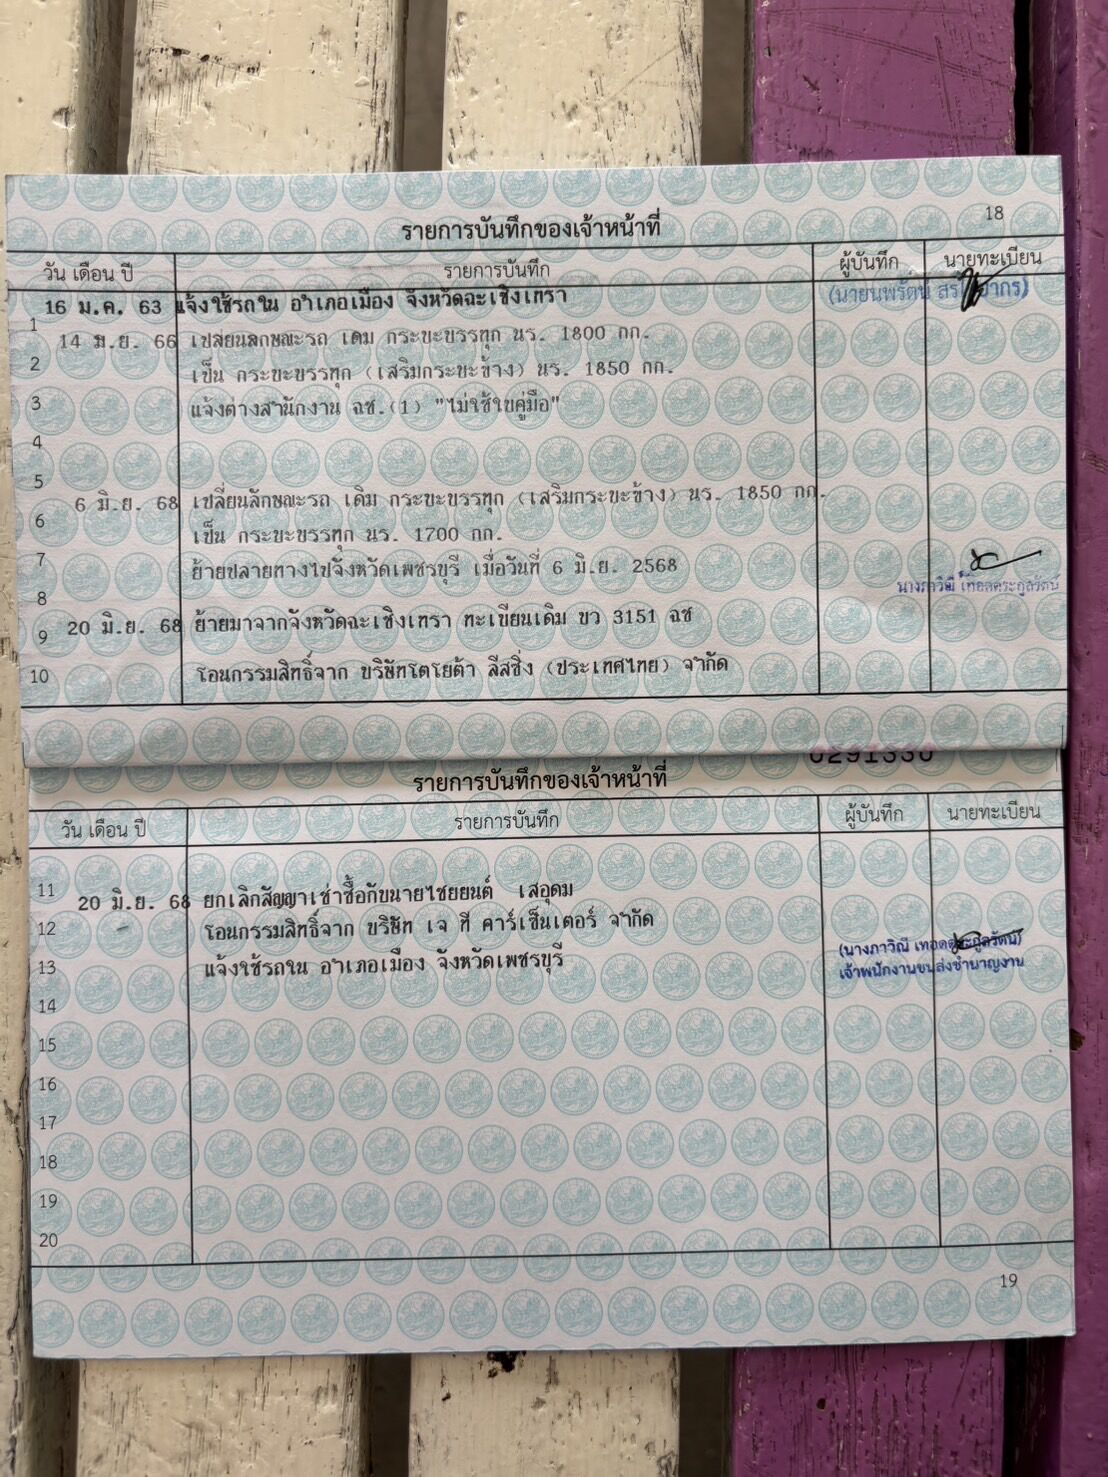 18
รายการบันทึกของเจ้าหน้าที่
วัน เดือน ปี รายการบันทึก ผู้บันทึก นายทะเบียน
16 ม.ค. 63 แจ้งใช้รถใน อำเภอเมือง จังหวัดฉะเชิงเทรา (นายนพรัตน์
1
14 มิ.ย. 66 เปลี่ยนลักษณะรถ เดิม กระบะบรรทุก นร. 1800 กก.
2 เป็น กระบะบรรทุก (เสริมกระบะข้าง) นร. 1850 กก.
3 แจ้งต่างสำนักงาน ฉช.(1) "ไม่ใช้ใบคู่มือ"
4
5
6 มิ.ย. 68 เปลี่ยนลักษณะรถ เดิม กระบะบรรทุก (เสริมกระบะข้าง) นร. 1850 กก.
6 เป็น กระบะบรรทุก นร. 1700 กก.
7 ย้ายปลายทางไปจังหวัดเพชรบุรี เมื่อวันที่ 6 มิ.ย. 2568
นางภาวิณี เทอดตระกูลรัตน์
8
9 20 มิ.ย. 68 ย้ายมาจากจังหวัดฉะเชิงเทรา ทะเบียนเดิม ขว 3151 ฉช
10 โอนกรรมสิทธิ์จาก บริษัทโตโยต้า ลีสซิ่ง (ประเทศไทย) จำกัด
0291330
รายการบันทึกของเจ้าหน้าที่
วัน เดือน ปี รายการบันทึก ผู้บันทึก นายทะเบียน
11 20 มิ.ย. 68 ยกเลิกสัญญาเช่าซื้อกับนายไชยยนต์ เสอุดม
12 โอนกรรมสิทธิ์จาก บริษัท เจ ที คาร์เซ็นเตอร์ จำกัด
(นางภาวิณี เทอดตระกูลรัตน์)
13 แจ้งใช้รถใน อำเภอเมือง จังหวัดเพชรบุรี เจ้าพนักงานขนส่งชำนาญงาน
14
15
16
17
18
19
20
19